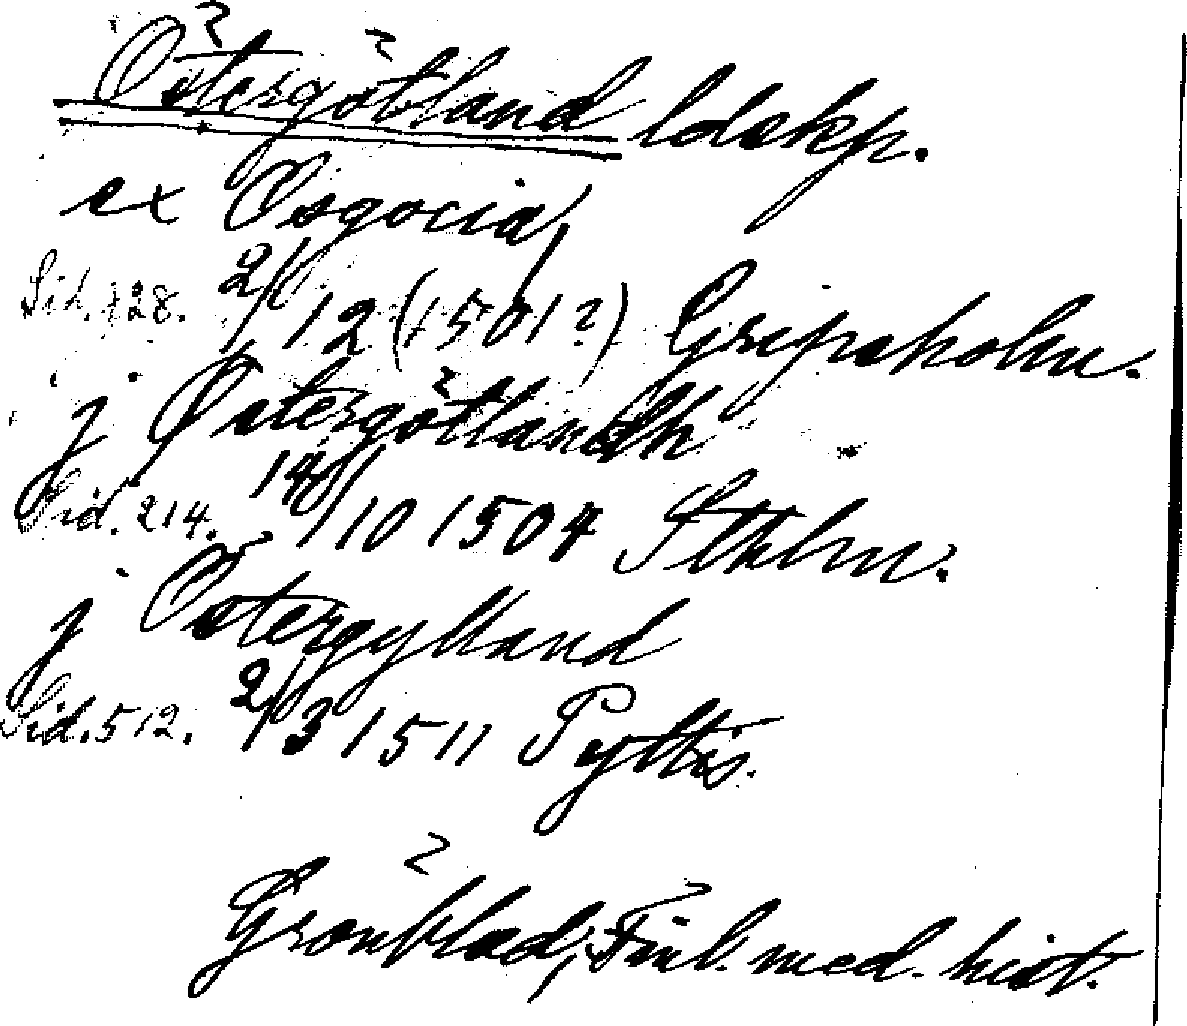 Östergötland ldskp.
ex Osgocia,
Sid. 128. 2/12 (1501?) Gripsholm.
j Østergötlandh
Sid. 214. 14/10 1504 Sthlm.
j Östergylland
Sid. 512. 2/3 1511 Pyttis.
Grönblad, Finl. med. hist.